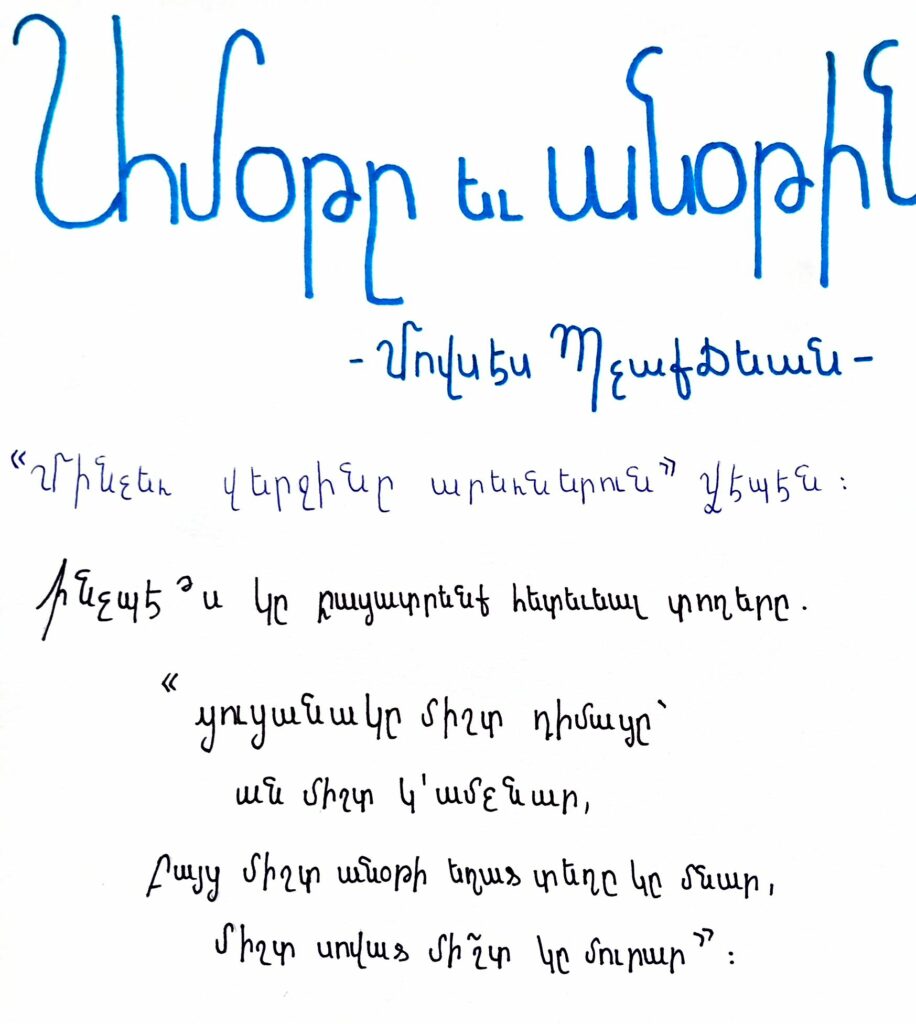 Ամօթը եւ անօթին
- Մովսէս Պչաքճեան -
«Մինչեւ վերջինը արեւներուն» Վէպէն ։
Ինչպէ՞ս կը բացատրենք հետեւեալ տողերը.
« ցուցանակը միշտ դիմացը՝
ան միշտ կ'ամչնար,
Բայց միշտ անօթի եղած տեղը կը մնար,
միշտ սոված մի՜շտ կը մուրար» ։